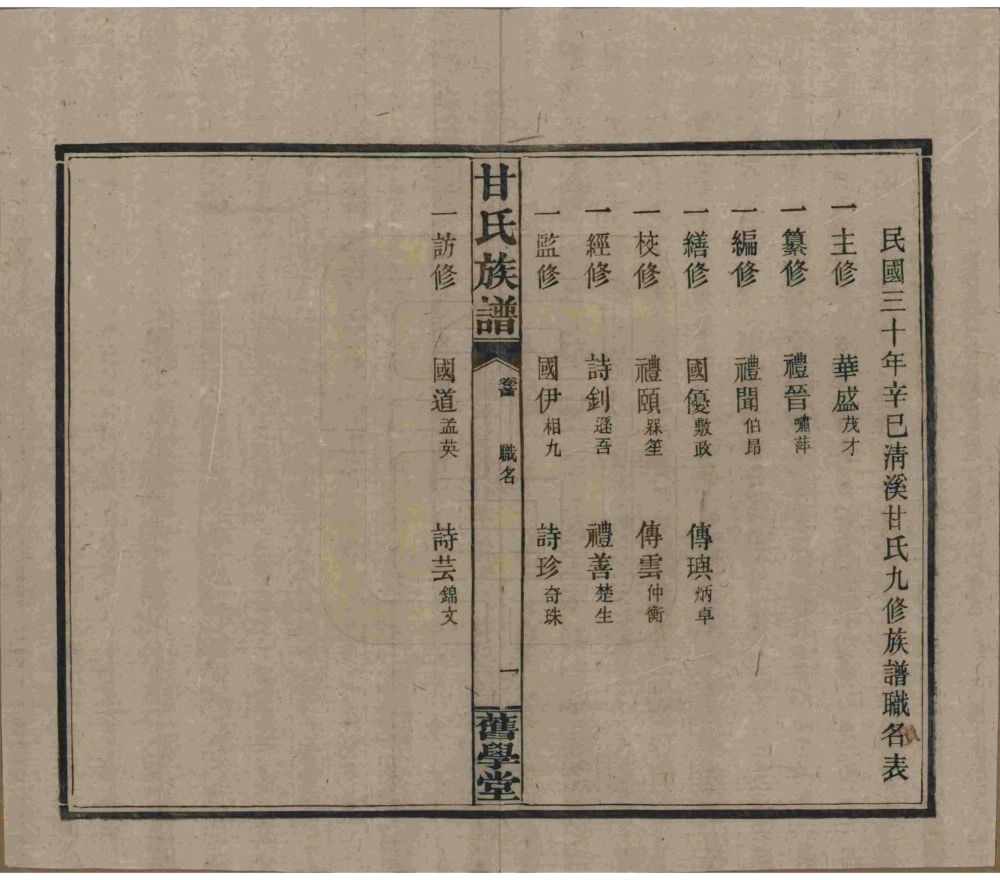 民國三十年辛巳清溪甘氏九修族譜職名表
一主修 華盛茂才
一纂修 禮晉嘯萍
一編修 禮聞伯昻
一繕修 國優敷政 傳璵炳卓
一校修 禮頤槑笙 傳雲仲衡
一經修 詩釗遜吾 禮善楚生
一監修 國伊相九 詩珍奇珠
甘氏族譜 卷首 職名 一 舊學堂
一訪修 國道孟英 詩芸錦文